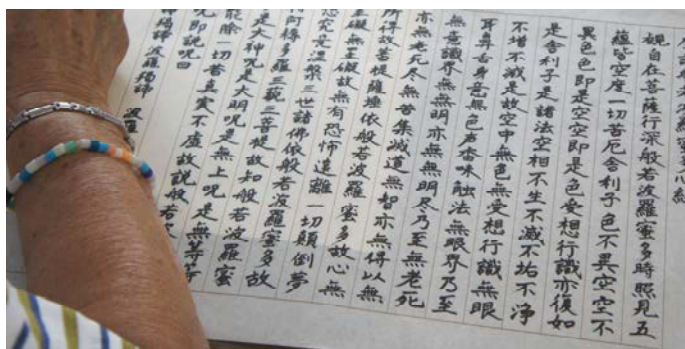 般若波羅蜜多心経
観自在菩薩行深般若波羅蜜多時照見五
蘊皆空度一切苦厄舎利子色不異空空不
異色色即是空空即是色受想行識亦復如
是舎利子是諸法空相不生不滅不垢不浄
不増不減是故空中無色無受想行識無眼
耳鼻舌身意無色声香味触法無眼界乃至
無意識界無無明亦無無明尽乃至無老死
亦無老死尽無苦集滅道無智亦無得以無
所得故菩提薩埵依般若波羅蜜多故心無
罣礙無罣礙故無有恐怖遠離一切顛倒夢
究竟涅槃三世諸佛依般若波羅蜜多故
阿耨多羅三藐三菩提故知般若波羅蜜
是大神呪是大明呪是無上呪是無等等
能除一切苦真実不虚故説般若
呪即説呪曰
羯諦 波羅羯諦 波羅